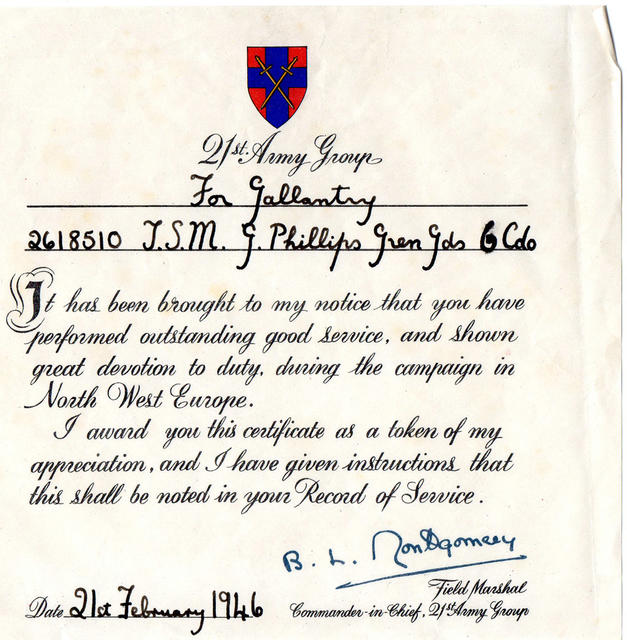 21st. Army Group
For Gallantry
2618510 T.S.M. G. Phillips Gren Gds 6 Cdo
It has been brought to my notice that you have
performed outstanding good service, and shown
great devotion to duty, during the campaign in
North West Europe.
I award you this certificate as a token of my
appreciation, and I have given instructions that
this shall be noted in your Record of Service.
B. L. Montgomery
Field Marshal
Date 21st February 1946
Commander-in-Chief, 21st Army Group